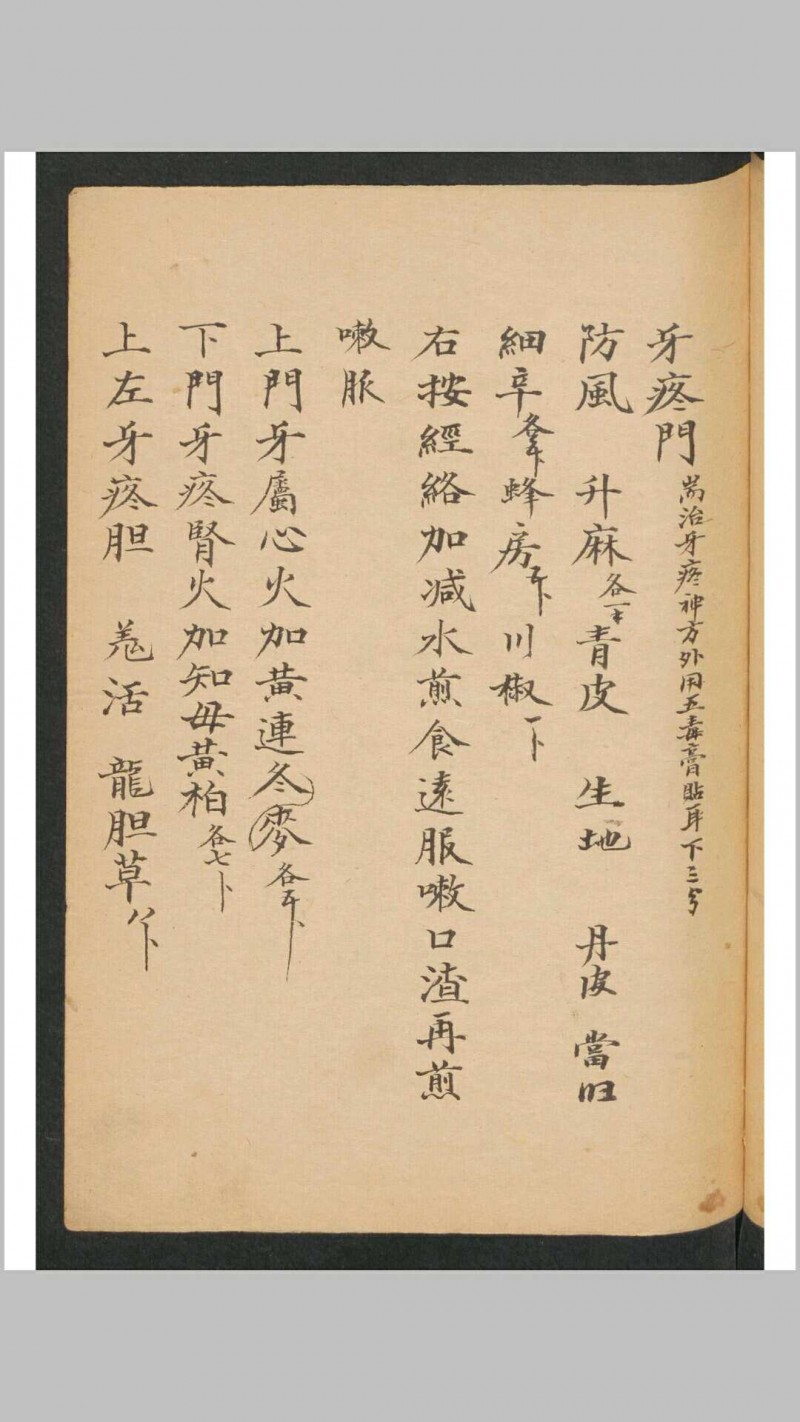 牙疼門 耑治牙疼神方外用五毒膏貼耳下三分
防風 升麻各一 青皮 生地 丹皮 當归
細辛各五卜 蜂房五卜 川椒一卜
右按經絡加减水煎食遠服嗽口渣再煎
嗽服
上門牙屬心火加黃連冬麥各五卜
下門牙疼腎火加知母黃柏各七卜
上左牙疼胆 羗活 龍胆草八卜